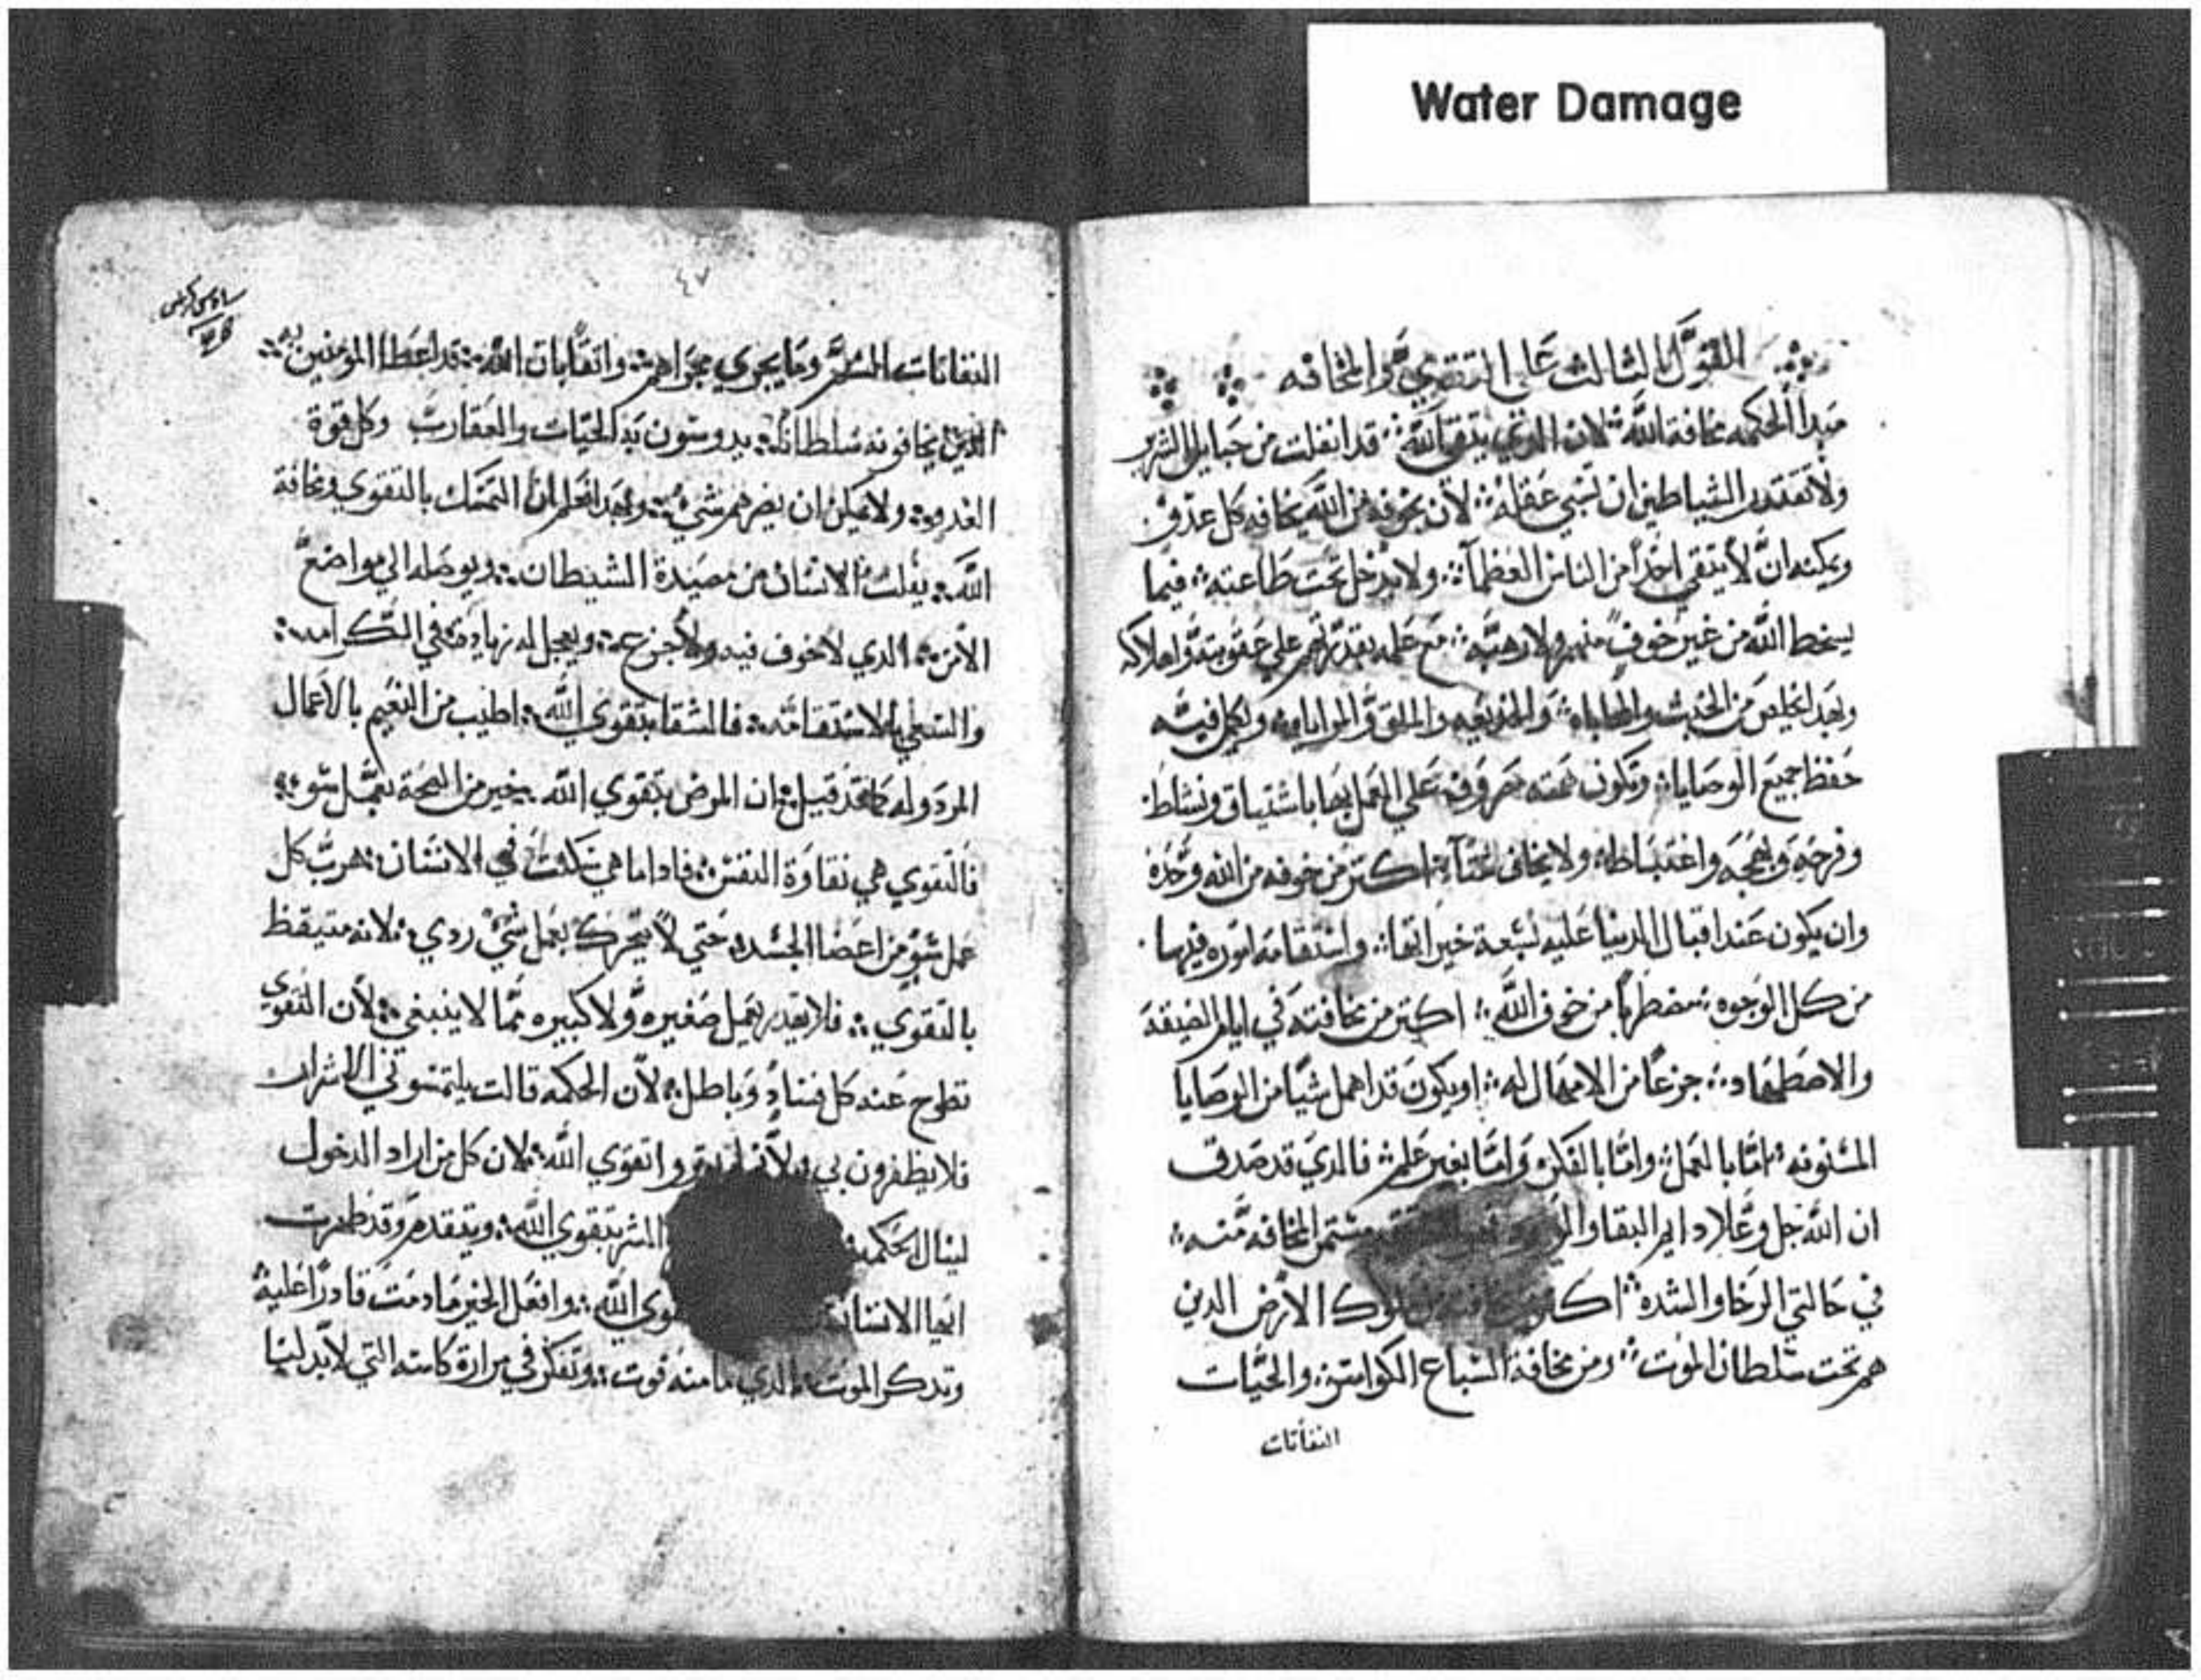 Water Damage
القول الثالث على التقوي والمخافه
مبدأ الحكمه مخافة الله لان الدي يتقي الله قد انفلت من حبايل الشرير
ولا تقتدر الشياطين ان تسبي عقله لان بخوفه من الله يخافه كل عدو
ويمكنه ان لا يتقي احداً من الناس العظمآ ولا يدخل تحت طاعته فيما
يسخط الله من غير خوف منهم ولا رهبه مع علمه بقدرتهم علي عقوبته واهلاكه
وبعد من الخبث والمحاباه والملق ويكمل فيه
حفظ جميع الوصايا وتكون همته مصروفه علي العمل بها باشتياق ونشاط
وفرحه وبهجه واغتباطا ولا يخاف اكتر من خوفه من الله وحده
وان يكون عند اقبال الدنيا عليه واستقامه اموره فيها
من كل الوجوه مضطرباً من خوف الله اكتر من مخافته في ايام الضيقه
والاضطهاد جزعاً من الامهال له او يكون قد اهمل شياً من الوصايا
اما بالعمل واما بالفكر واما بغير علم فالدي قد صدق
ان الله جل وعلا دايم البقا المخافه منه
في حالتي الرخا والشده ملوك الارض الدين
هم تحت سلطان الموت ومن مخافة السباع الكواسر والحيات
النفاتات
٤٧
النفاتات السم وما يجري مجراهم واتقا بان الله قد اعطا المومنين به
الدين يخافونه سلطاناً يدوسون به الحيات والعقارب وكل قوة
العدو ولا يمكن ان يضرهم شي التمسك بالتقوي ومخافة
الله يفلت الانسان من مصيدة الشيطان ويوصله الي مواضع
الامن الدي لا خوف فيه ولا جزع ويجعل له زيادة في الكرامه
بالاستقامه فالشقا بتقوي الله اطيب من النعيم بالاعمال
المردوله قيل ان المرض بتقوي الله خير من الصحة بعمل سو
فالتقوي هي نقاوة النفس فادا ما هي سكنت في الانسان هرب كل
عمل سو من اعضا الجسد حتي لا يتحرك بعمل شي ردي لانه متيقظ
بالتقوي فلا يقدر يعمل صغيره ولا كبيره مما لا ينبغي لان التقوي
تطرح عنه كل فساد وباطل لان الحكمه قالت يلتمسوني الاشرار
فلا يظفرون بي لانهم لم تقوي الله لان كل من اراد الدخول
لينال الحكمه بتقوي الله ويتقدم وقد ظهرت
ايها الانسان الله وافعل الخير ما دمت قادراً عليه
وتدكر الموت الدي ما منه فوت وتفكر في مرارة كاسه التي لا بد لنا